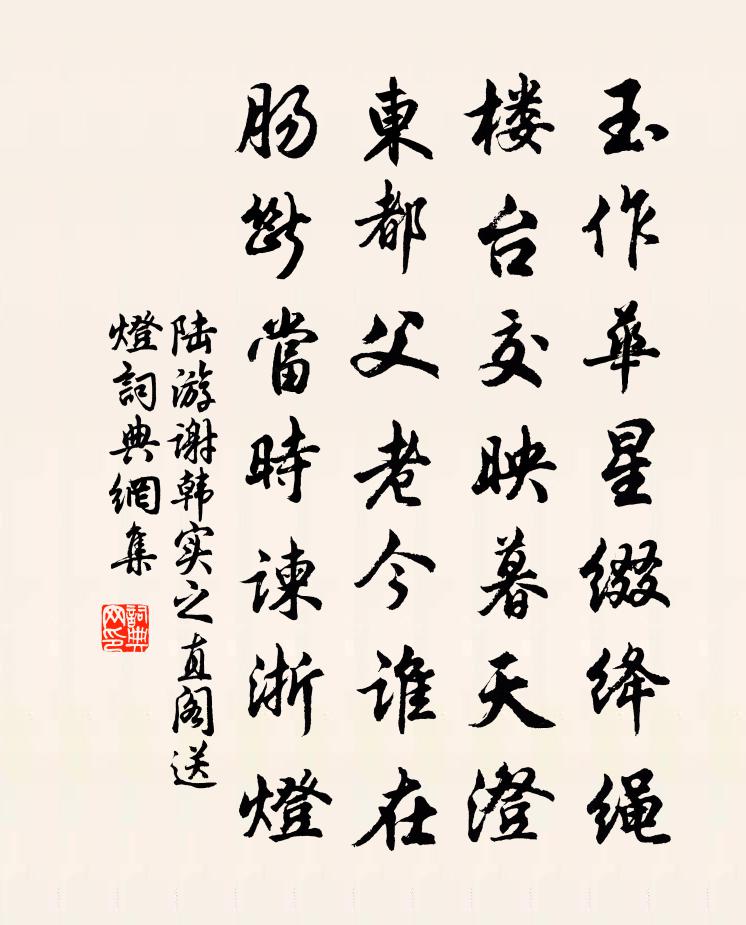 玉作華星缀绛绳
楼台交映暮天澄
東都父老今谁在
肠斷當時谏浙燈
陆游谢韩实之直阁送
燈詞典網集
詞典网印